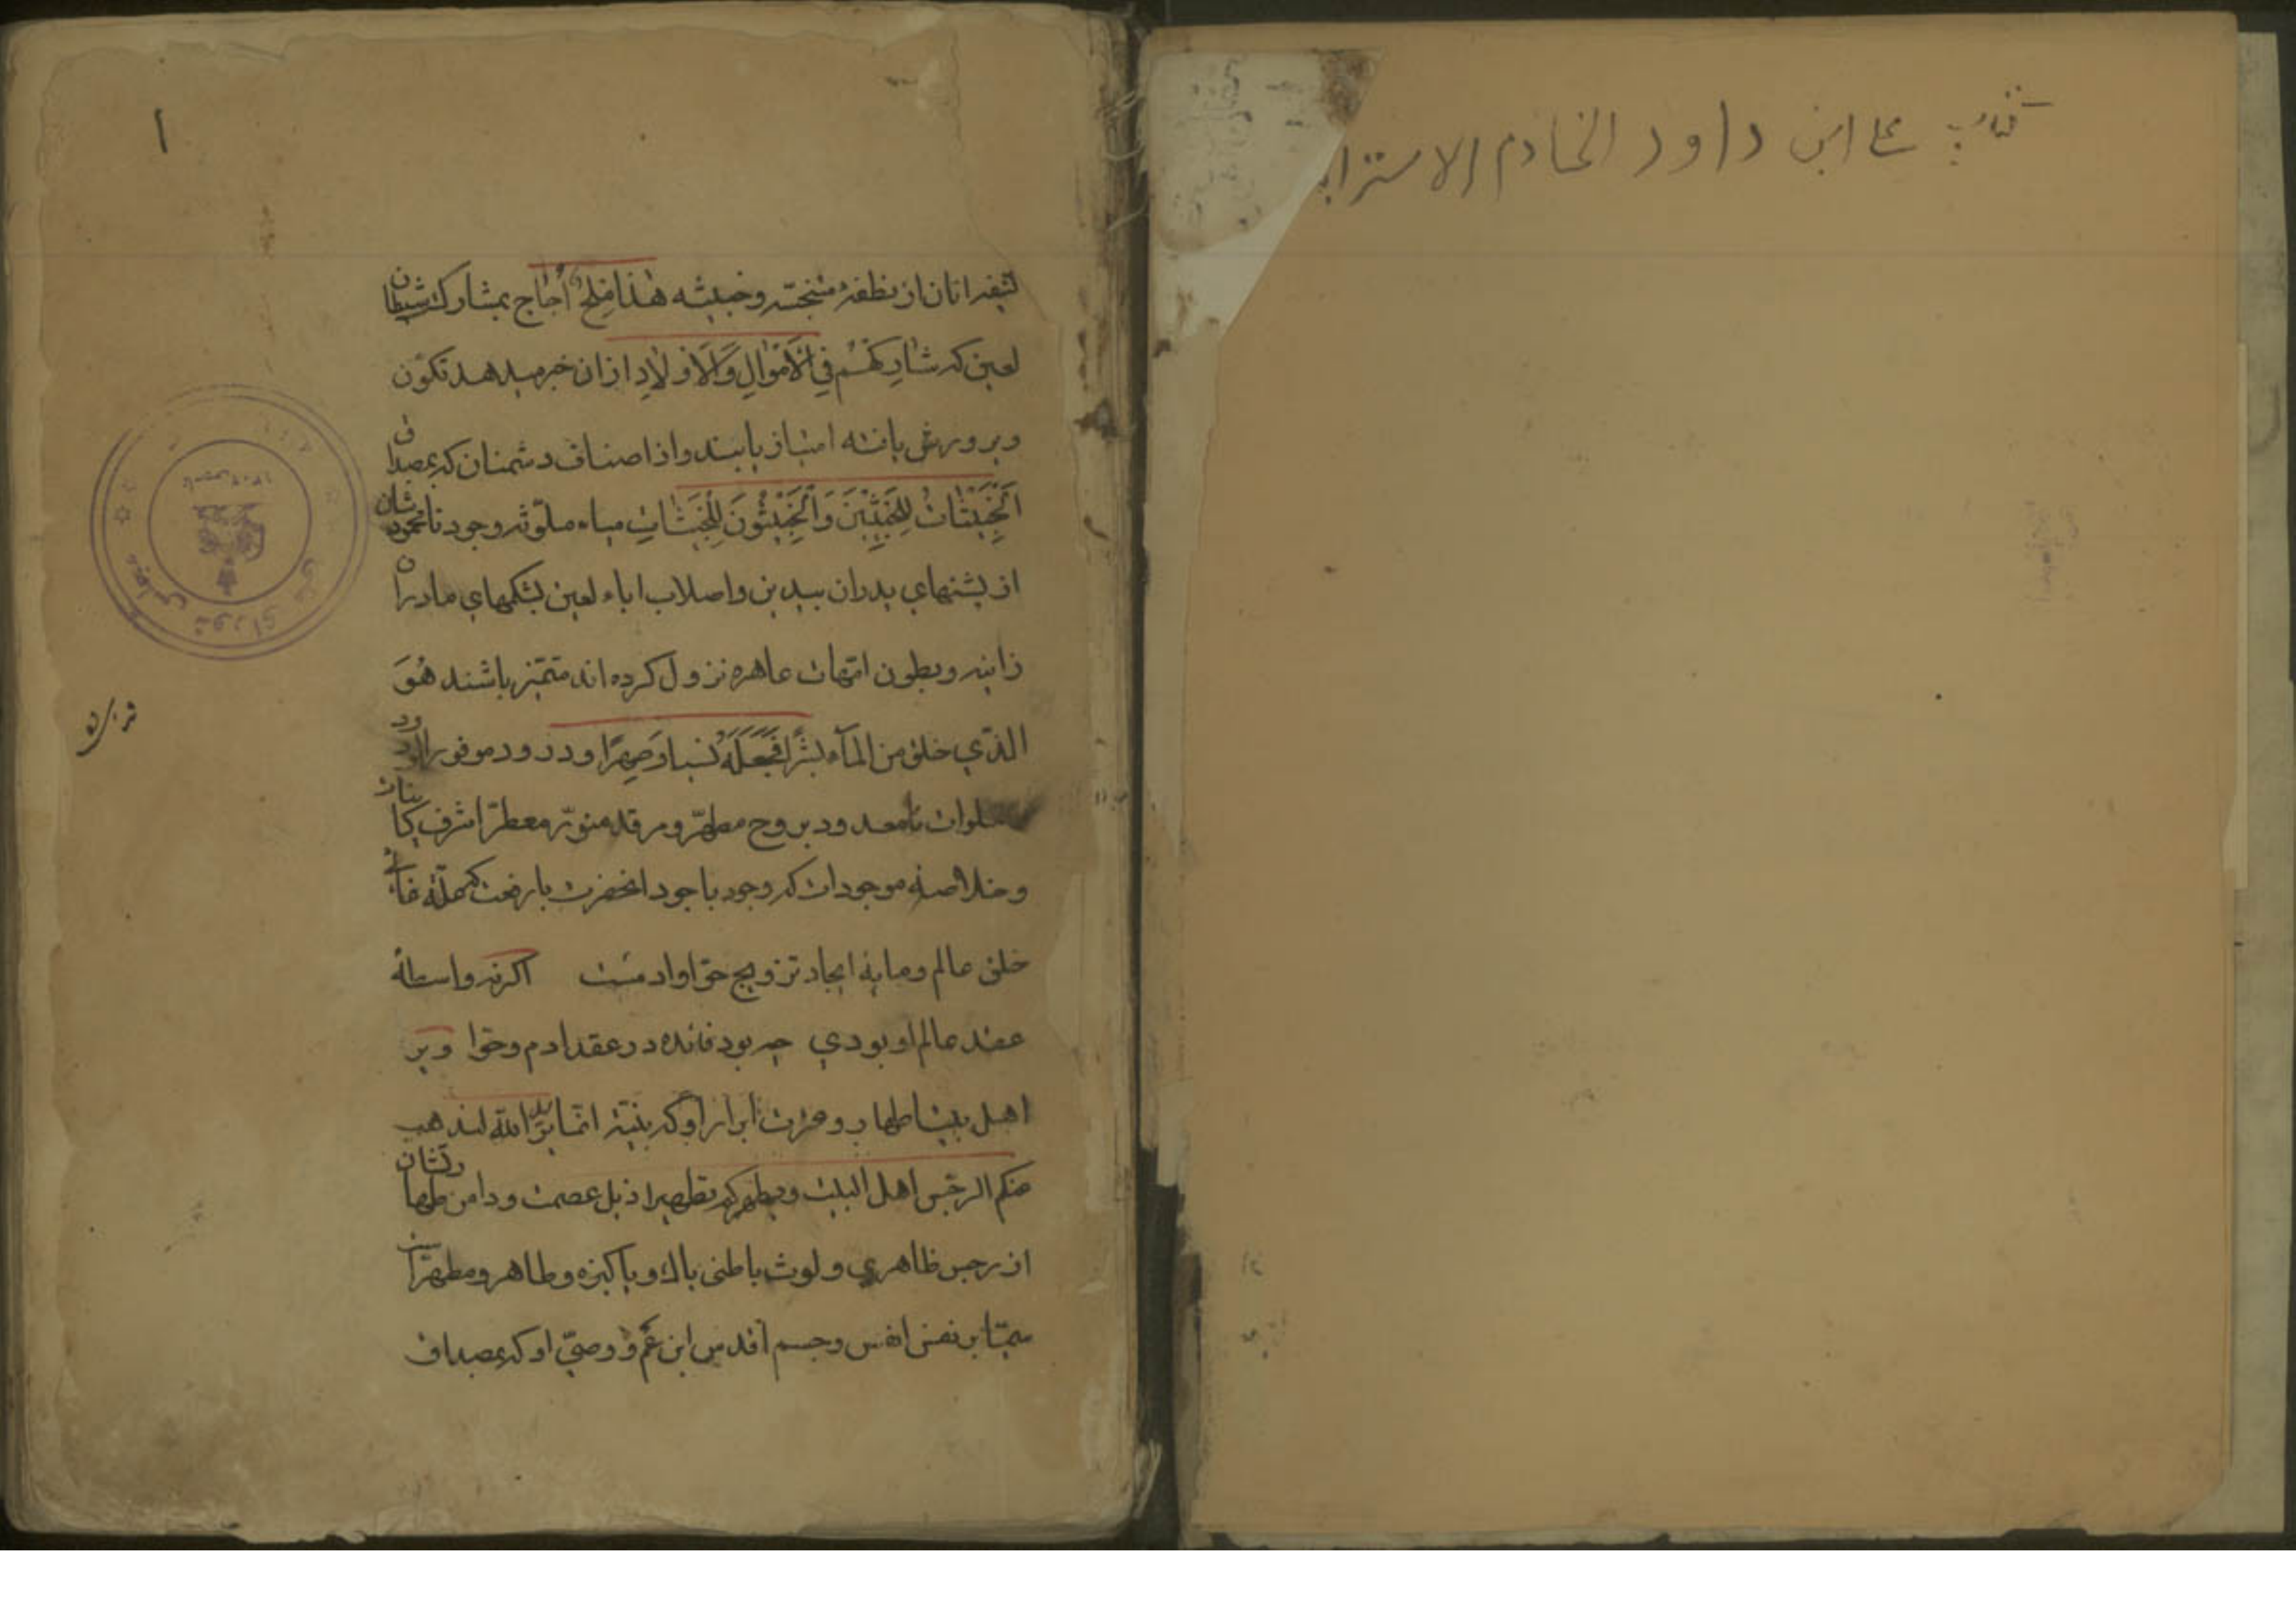 كتاب علی ابن داود الخادم الاسترابا
۱
لئیم انان از نطفهٔ منجسه و خبیثه هٰذا مِلحٌ أُجاج بمشارکت شیطان
لعین که شارِکْهُم فِي الْأَمْوٰالِ وَالْأَوْلٰادِ از ان خبر میدهد تکوّن
و پرورش یافته امتیاز یابند و از اصناف دشمنان که بمصداق
اَلْخَبِیثٰاتُ لِلْخَبِیثِینَ وَالْخَبِیثُونَ لِلْخَبِیثٰاتِ میاه ملوّثه وجود نامحمودشان
از پشتهای پدران بیدین و اصلاب اباء لعین بشکمهای مادران
زانیه و بطون امّهات عاهره نزول کرده اند متمیّز باشند هُوَ
الّذي خلق من المآء بشرًا فَجَعَلَهُ نسبا وَصِهرًا و درود موفور الورود
صلوات نامعدود بر روح مطهّر و مرقد منوّر معطّر اشرف کاینات
و خلاصه موجودات که وجود باجود انحضرت بارفعت کعلّة غائی
خلق عالم و مایهٔ ایجاد تزویج حوّا و ادمست اگر نه واسطهٔ
عقد عالم او بودي چه بود فائده در عقد ادم و حوّا و بر
اهل بیت اطهار و عترت ابرار او که بنیّة انّما یرید الله لیذهب
عنکم الرّجس اهل البیت و یطهرکم تطهیرا ذیل عصمت و دامن طهارتشان
از رجس ظاهري و لوث باطنی پاك و پاکیزه و طاهر و مطهّر است
سیّما بر نفس انفس و جسم اقدس ابن عمّ و وصيّ او که بمصداق